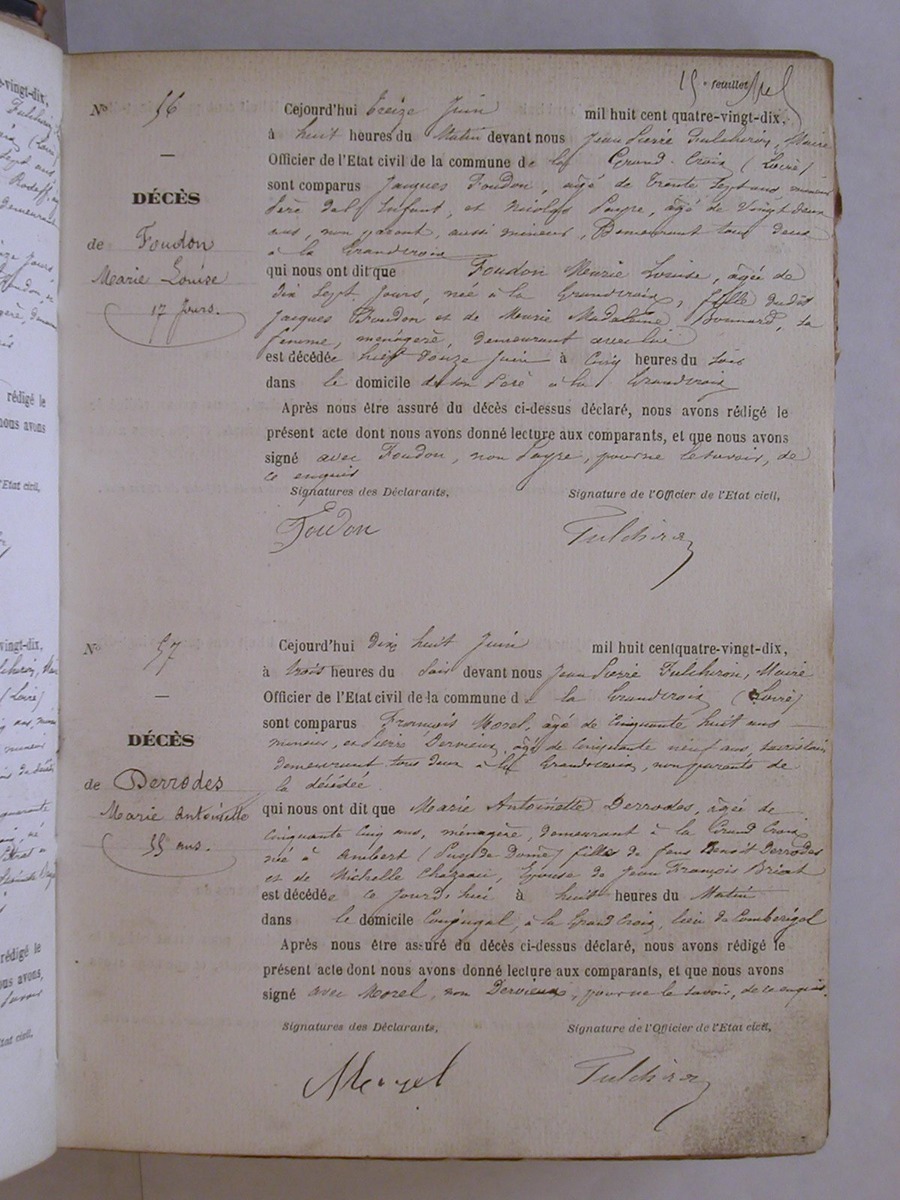 feuillet
No 56
DÉCÈS
de Foudon
Marie Louise
17 Jours.
Cejourd'hui treize Juin mil huit cent quatre-vingt-dix,
à huit heures du Matin devant nous Jean Pierre Fulchiron, Maire
Officier de l'Etat civil de la commune de la Grand-Croix (Loire)
sont comparus Jacques Foudon, agé de Trente Sept ans mineur
Père de l'Enfant, et Nicolas Payre, agé de Vingt deux
ans, non parent, aussi mineur, Demeurant tous deux
à la Grandcroix
qui nous ont dit que Foudon Marie Louise, agée de
dix Sept Jours, née à la Grandcroix, fille dudit
Jacques Foudon et de Marie Madeleine Bonnard, sa
femme, ménagère, demeurant avec lui
est décédée hier Douze Juin à Cinq heures du Soir
dans le domicile de son Père à la Grandcroix
Après nous être assuré du décès ci-dessus déclaré, nous avons rédigé le
présent acte dont nous avons donné lecture aux comparants, et que nous avons
signé avec Foudon, non Payre, pour ne le savoir, de
ce enquis
Signatures des Déclarants, Signature de l'Officier de l'Etat civil,
Foudon Fulchiron
No 57
DÉCÈS
de Derrodes
Marie Antoinette
55 ans.
Cejourd'hui dix huit Juin mil huit cent quatre-vingt-dix,
à trois heures du Soir devant nous Jean Pierre Fulchiron, Maire
Officier de l'Etat civil de la commune de la Grandcroix (Loire)
sont comparus François Morel, âgé de Cinquante huit ans
mineur, et Pierre Dervieux, agé de Cinquante neuf ans, sacristain
demeurant tous deux à la Grandcroix, non parents de
la décédée
qui nous ont dit que Marie Antoinette Derrodes, âgée de
Cinquante Cinq ans, ménagère, demeurant à la Grand Croix
née à Ambert (Puy de Dôme) fille de feus Benoit Derrodes
et de Michelle Chazeau, Epouse de Jean François Briat
est décédée ce Jourd'hui à huit heures du Matin
dans le domicile Conjugal, à la Grand Croix, lieu de Combérigol
Après nous être assuré du décès ci-dessus déclaré, nous avons rédigé le
présent acte dont nous avons donné lecture aux comparants, et que nous avons
signé avec Morel, non Dervieux, pour ne le savoir, de ce enquis.
Signatures des Déclarants, Signature de l'Officier de l'Etat civil,
Morel Fulchiron